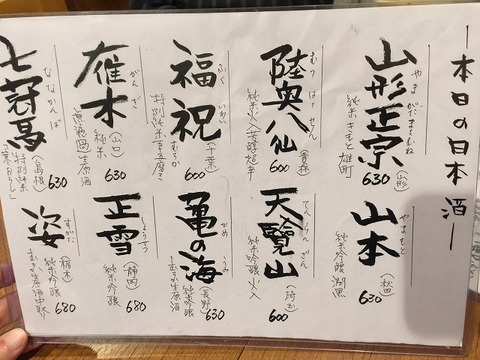 本日の日本酒
やまがたまさむね
山形正宗
(山形)
純米きもと雄町
630
やまもと
山本
(秋田)
純米吟醸 潤黒
630
むつはっせん
陸奥八仙
(青森)
純米火入 芳醇超辛
600
てんらんざん
天覽山
(埼玉)
純米吟醸火入
600
ふくいわい
福祝
(千葉)
特別純米 五百万
むろか
600
かめのうみ
亀の海
(長野)
純米吟醸
むろか生原酒
630
がんぎ
雁木
(山口)
純米
無濾過生原酒
630
しょうせつ
正雪
(静岡)
純米吟醸
680
ななかんば
七冠馬
(島根)
特別純米
「寒おろし」
630
すがた
姿
(栃木)
純米吟醸
むろか生原酒中取
680